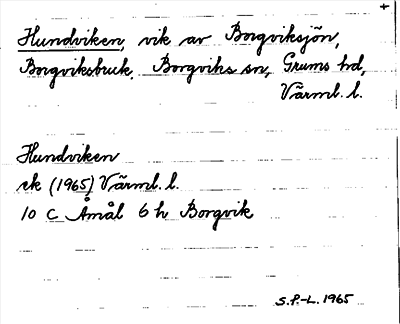 +
Hundviken, vik av Borgviksjön,
Borgviksbruk, Borgviks sn, Grums hd,
Värml. l.
Hundviken
ek (1965) Värml. l.
10 C Åmål 6 h Borgvik
S.P.-L. 1965